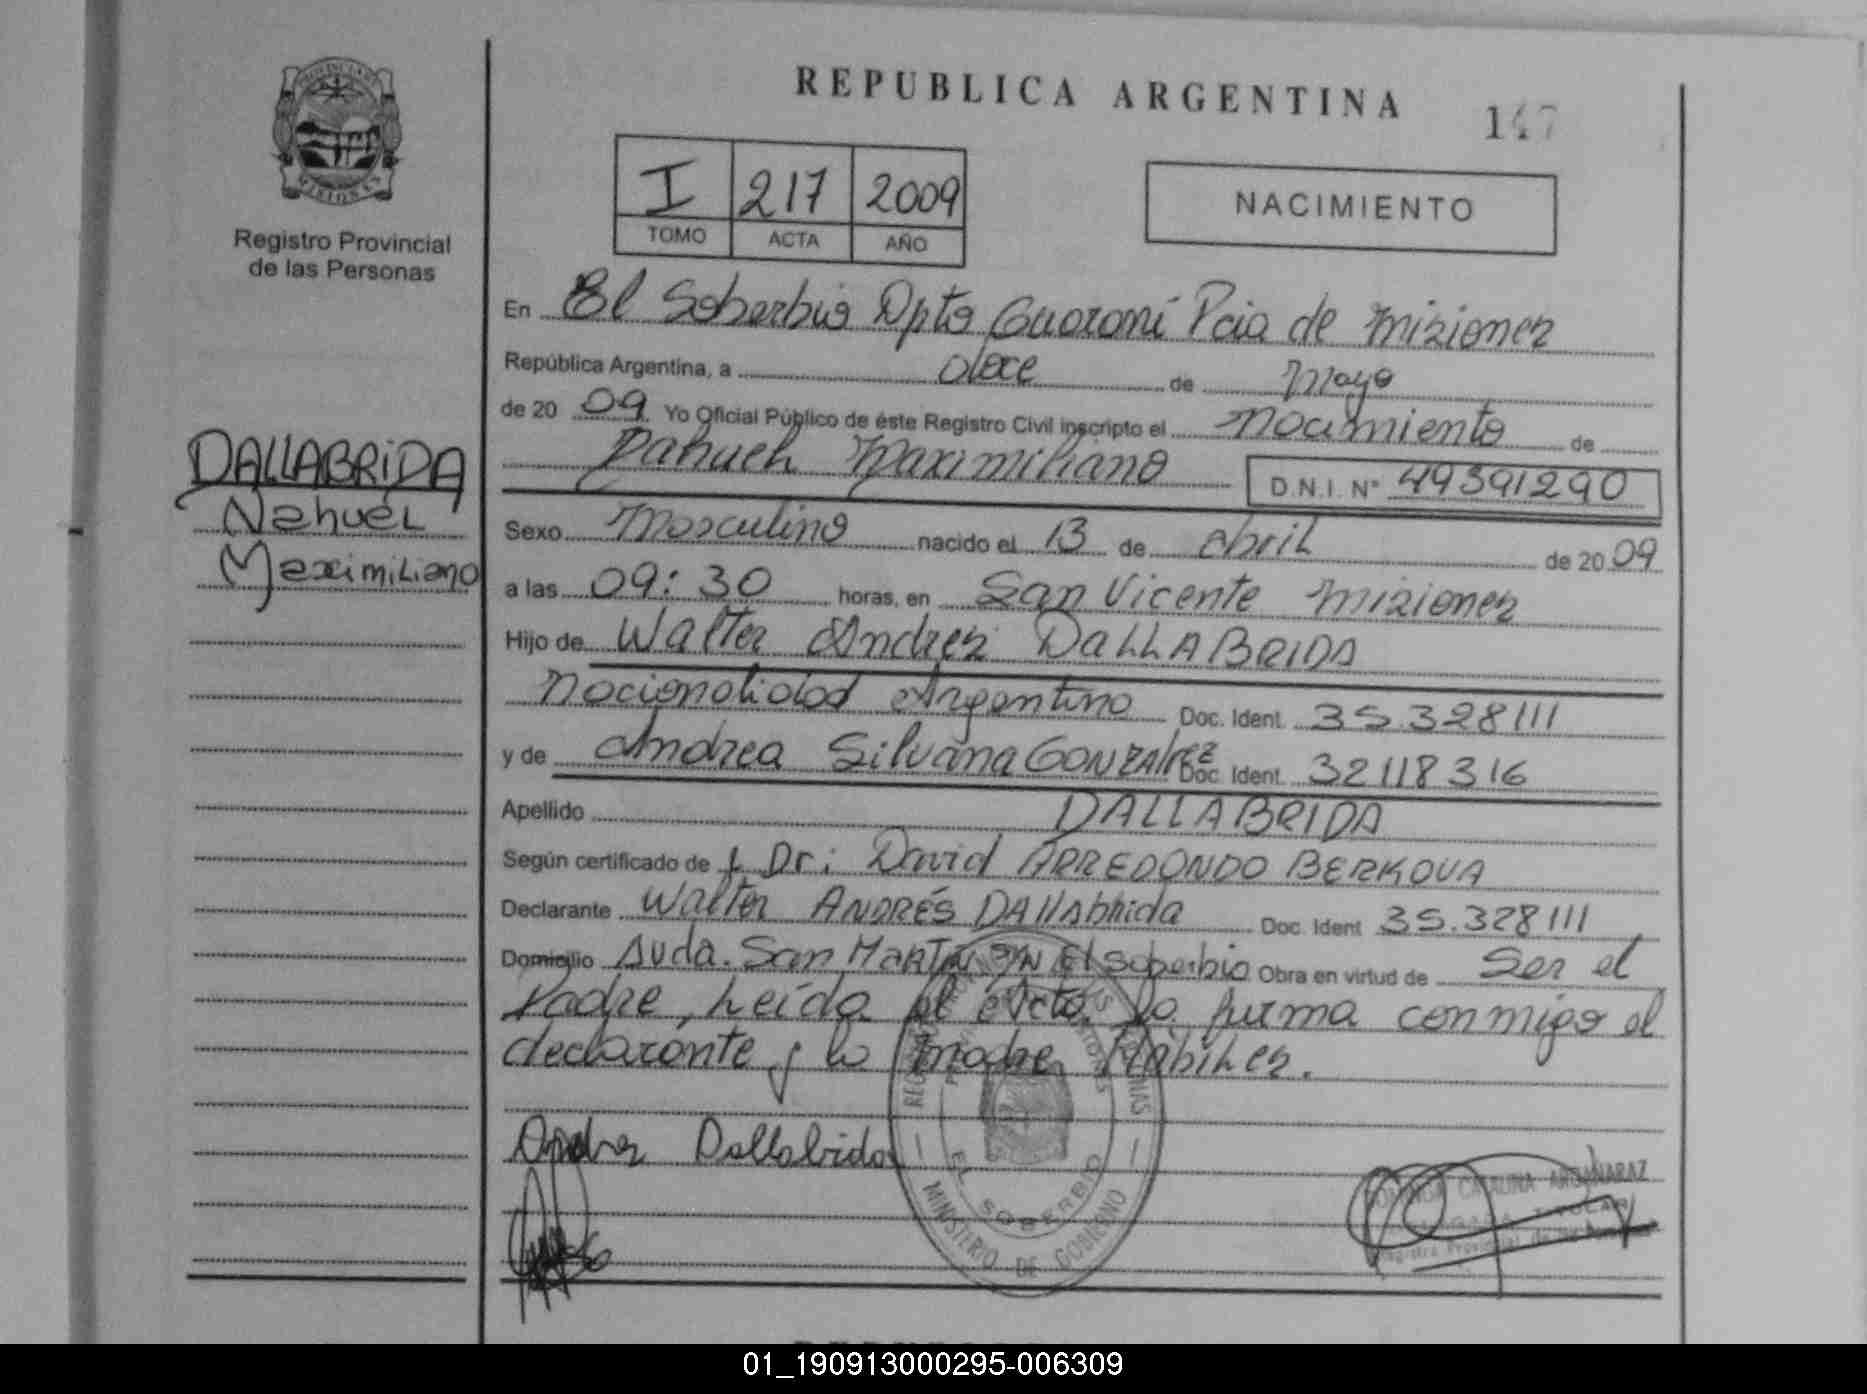 REPUBLICA ARGENTINA
147
PROVINCIA DE
MISIONES
Registro Provincial
de las Personas
I 217 2009
TOMO ACTA AÑO
NACIMIENTO
En El Soberbio Dpto Guaraní Pcia de Misiones
República Argentina, a doce de Mayo
de 20 09 Yo Oficial Público de éste Registro Civil inscripto el Nacimiento de
Nahuel Maximiliano D.N.I. N° 49391290
DALLABRIDA
Nahuel
Maximiliano
Sexo Masculino nacido el 13 de Abril de 20 09
a las 09:30 horas, en San Vicente Misiones
Hijo de Walter Andres DALLABRIDA
Nacionalidad Argentino Doc. Ident. 35.328111
y de Andrea Silvana GONZALEZ Doc. Ident. 32118316
Apellido DALLABRIDA
Según certificado de Dr: David ARREDONDO BERKOVA
Declarante Walter ANDRÉS DAllAbrida Doc. Ident 35.328111
Domicilio Avda. San MARTIN S/N El Soberbio Obra en virtud de Ser el
Padre, Leída el Acta, la firma conmigo el
declarante y la madre Hábiles.
Andres Dallabrida
REGISTRO PROVINCIAL DE LAS PERSONAS
MISIONES
EL SOBERBIO
MINISTERIO DE GOBIERNO
CATALINA ARGAÑARAZ
TITULAR
Registro Provincial de las Personas
01_190913000295-006309